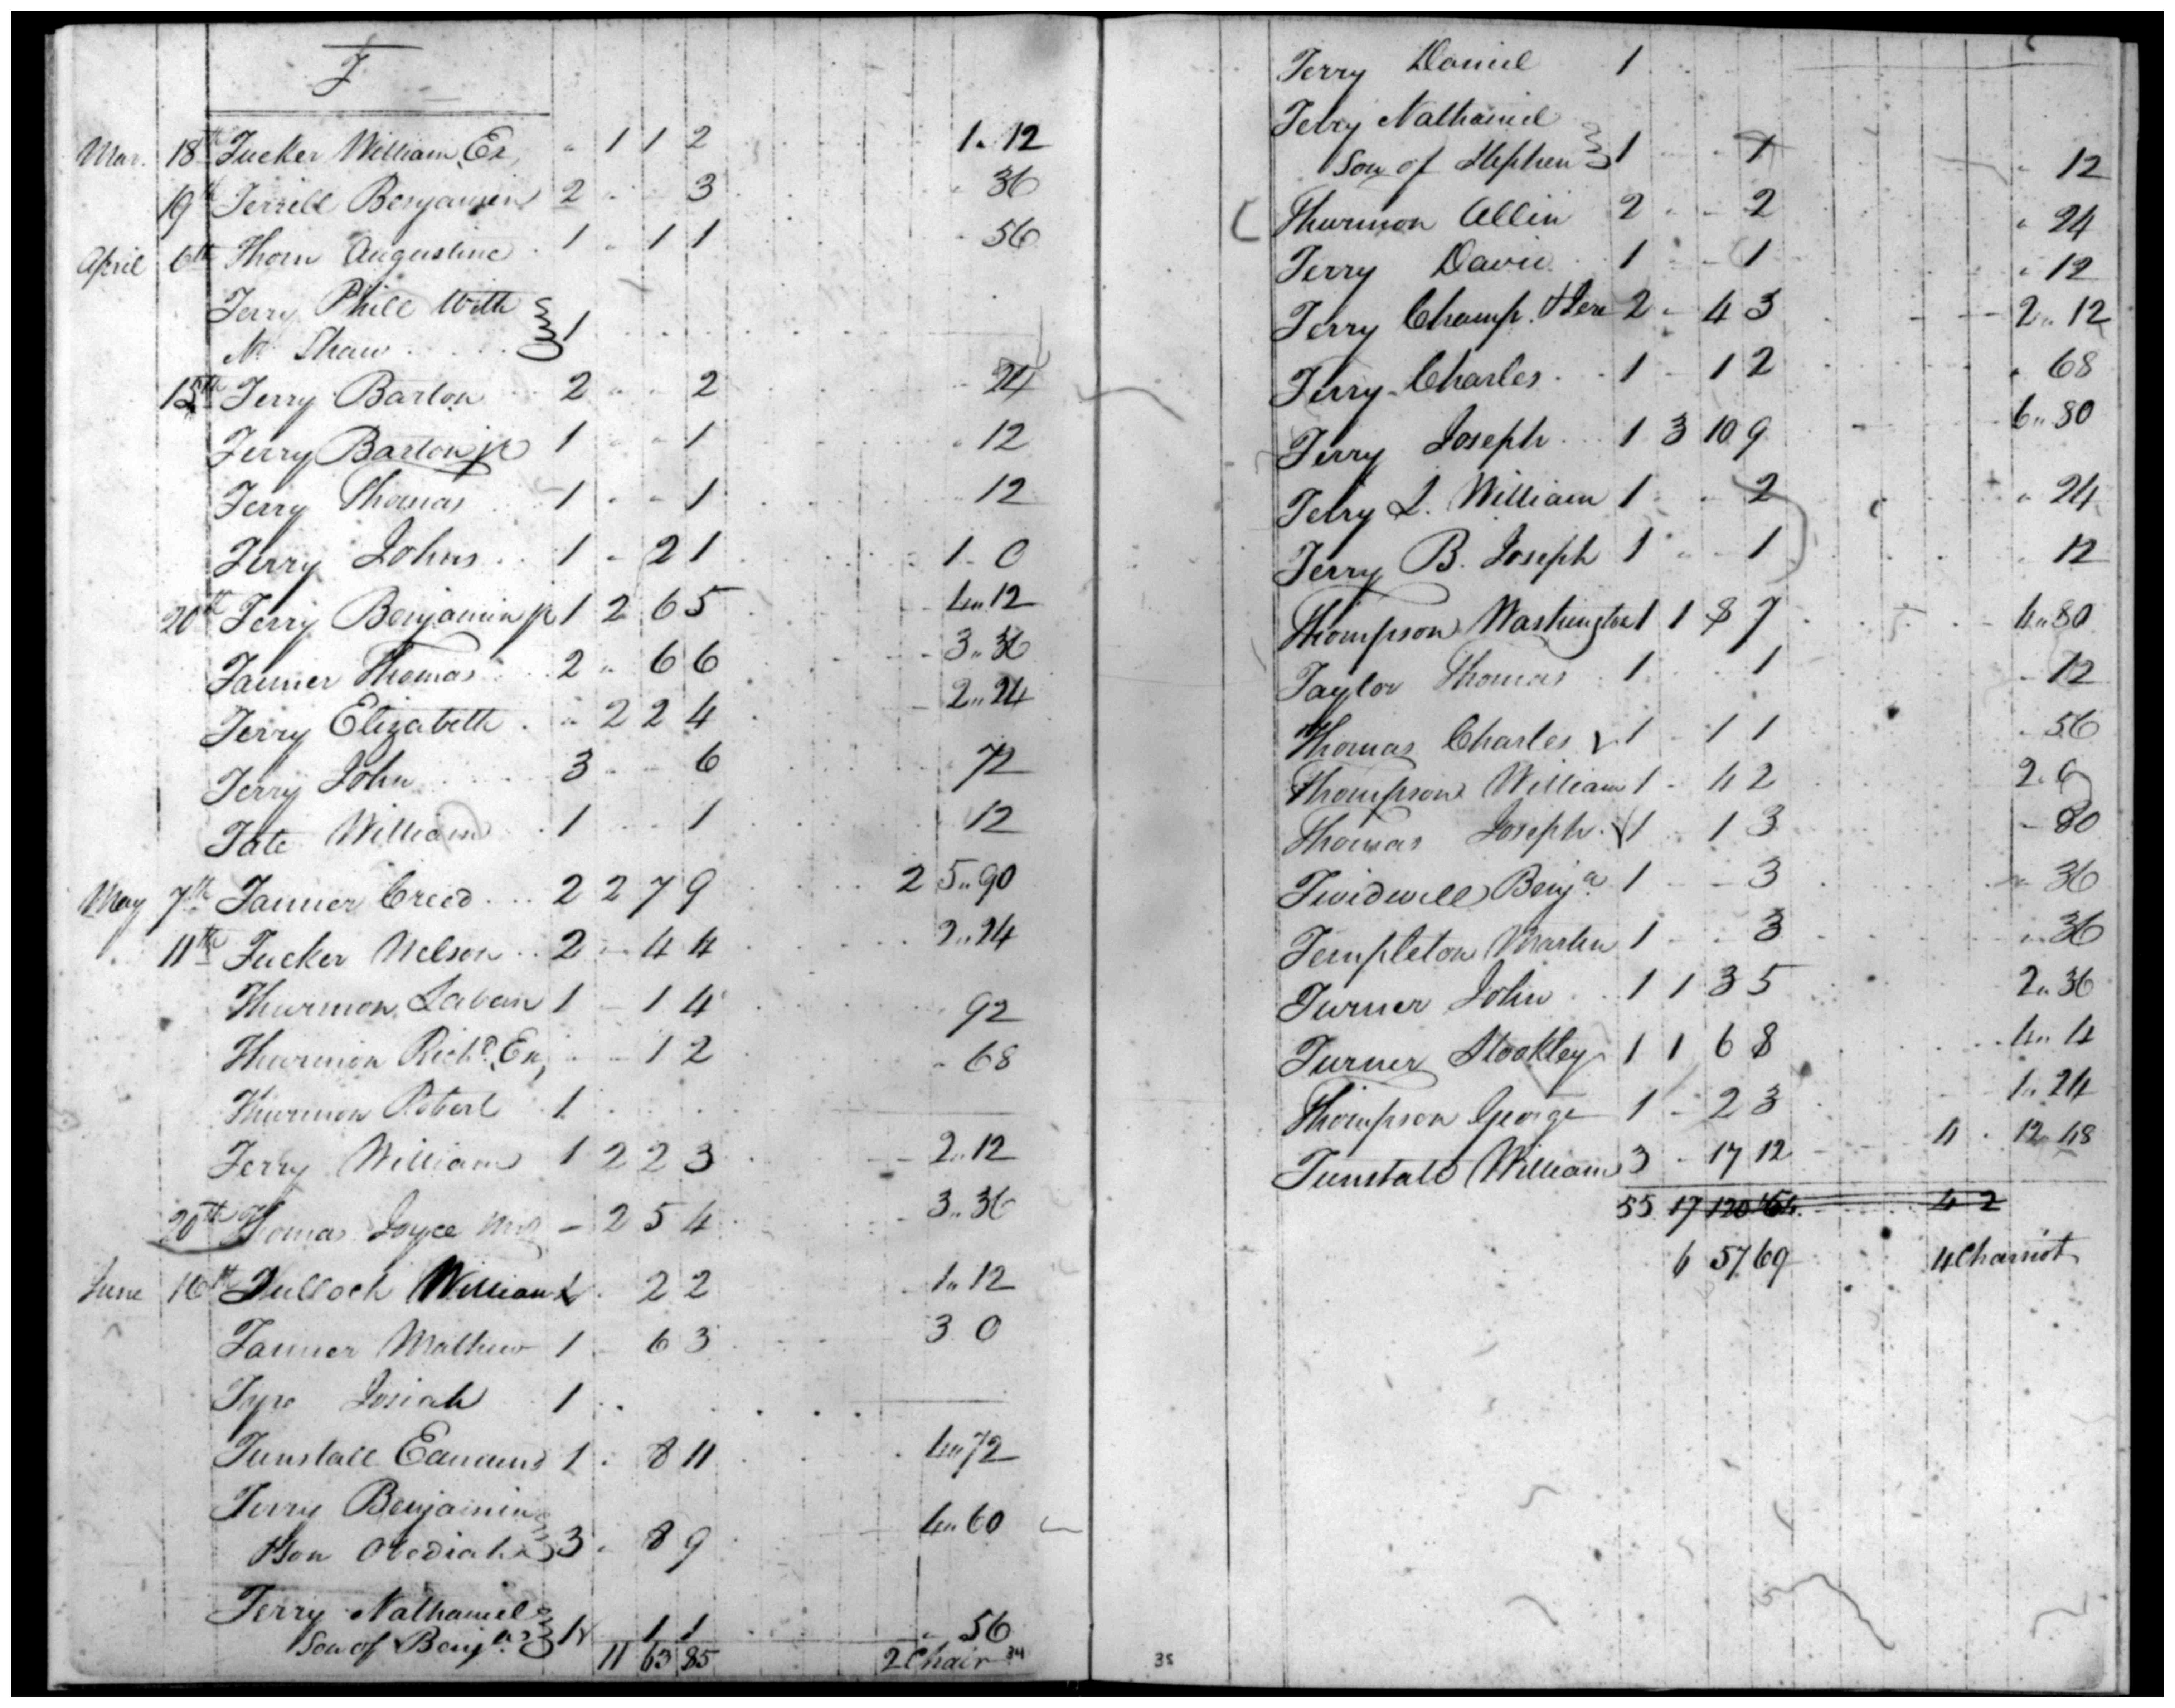 T
Mar. 18th Tucker William, Es, " 1 1 2 1.. 12
19th Terrell Benjamin 2 3 36
April 6th Thorn Augustine 1 1 1 56
Terry Phill With
M. Shaw 1
15th Terry Barton 2 2 24
Terry Barton jr 1 1 12
Terry Thomas 1 1 12
Terry Johns 1 2 1 1 0
20th Terry Benjamin jr 1 2 6 5 4..12
Tanner Thomas 2 6 6 3..36
Terry Elizabeth 2 2 4 2..24
Terry John 3 6 72
Tate William 1 1 12
May 7th Tanner Creed 2 2 7 9 2 5..90
11th Tucker Nelson 2 4 4 2..24
Thurmon Laban 1 1 4 92
Thurmon Richd. Es, 1 2 68
Thurmon Robert 1
Terry William 1 2 2 3 2..12
20th Thomas Joyce Mrs 2 5 4 3..36
June 16th Tulloch William 1 2 2 1..12
Tanner Mathew 1 6 3 3 0
Josiah 1
Tunstall Edmund 1 8 11 4..72
Terry Benjamin
Son Obediah 3 8 9 4..60
Terry Nathaniel
Son of Benja. 1 1 1 56
11 63 85 2 Chair 34
Terry Daniel 1
Terry Nathaniel
Son of Stephen 1 1 12
Thurmon Allin 2 2 24
Terry David 1 1 12
Terry Champ. 2 4 3 2..12
Terry Charles 1 1 2 68
Terry Joseph 1 3 10 9 6..80
Terry L. William 1 2 24
Terry B. Joseph 1 1 12
Thompson Washington 1 1 8 7 4..80
Taylor Thomas 1 1 12
Thomas Charles 1 1 1 56
Thompson William 1 4 2 2..0
Thomas Joseph 1 1 3 80
Twidwell Benja. 1 3 36
Templeton Martin 1 3 36
Turner John 1 1 3 5 2..36
Turner Stookley 1 1 6 8 4..4
Thompson George 1 2 3 1..24
Tunstall William 3 17 12 4 12..48
55 17 120 154 4 2
6 57 69 4 Chariot
35